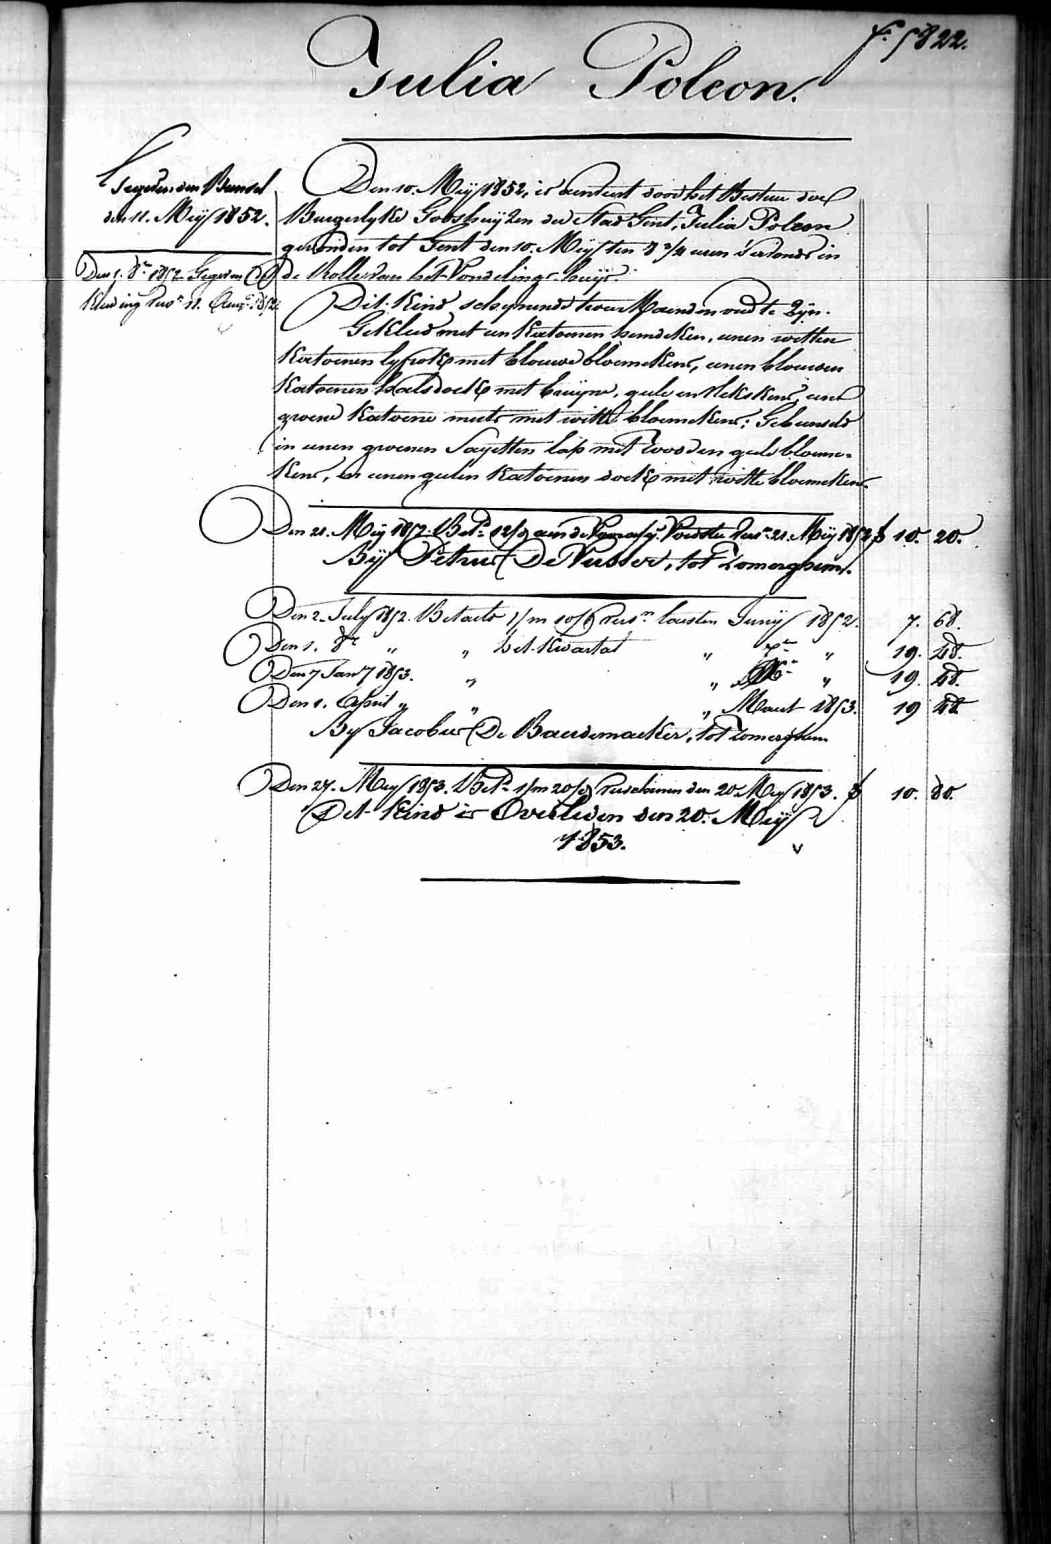 f.º 5822.
Julia Poleon.
Gegeven den Bunsel
den 11. Meij 1852.
Den 1. 8.re 1852 Gegeven de
Kleeding vers.n 11. Aug.s 1852.
Den 10. Meij 1852, is aenveert door het Bestuer der
Burgerlyke Godshuijzen der Stad Gent, Julia Poleon
gevonden tot Gent den 10. Meij ten 9 ½ uren s'avonds in
de Rolle van het Vondelings-huijs.
Dit Kind schynende twee Maenden oud te Zijn.
Gekleed met een Katoenen hemdeken, eenen witten
Katoenen lyfrok met blauwe bloemekens, eenen blauwen
Katoenen halsdoek met bruijne, geele en Vlekskens, eene
groene Katoene muts met witte bloemekens; Gebunseld
in eenen groenen Sayetten lap met rooden geele bloeme-
kens, en eenen geelen Katoenen doek met witte bloemekens.
Den 21. Meij 1852. Bet.d 12/9 aen de Voorafg. Voedster vers.n 21. Meij 1852 f 10. 20.
Bij Petrus De Vusser, tot Somerghem.
Den 2. July 1852. Betaeld 1/m 10/9 vers.n laesten Junij 1852. 7. 68.
Den 1. 8.re " " het Kwartael " 7.re " 19. 48.
Den 7 Jan.y 1853. " " X.re " 19. 48.
Den 1. April " " " Maert 1853. 19 48.
By Jacobus De Baerdemaeker, tot Somerghem
Den 27. Mey 1853. Bet.d 1/m 20/9 verschenen den 20. Mey 1853. f 10. 80.
Dit Kind is Overleden den 20. Meij
1853.